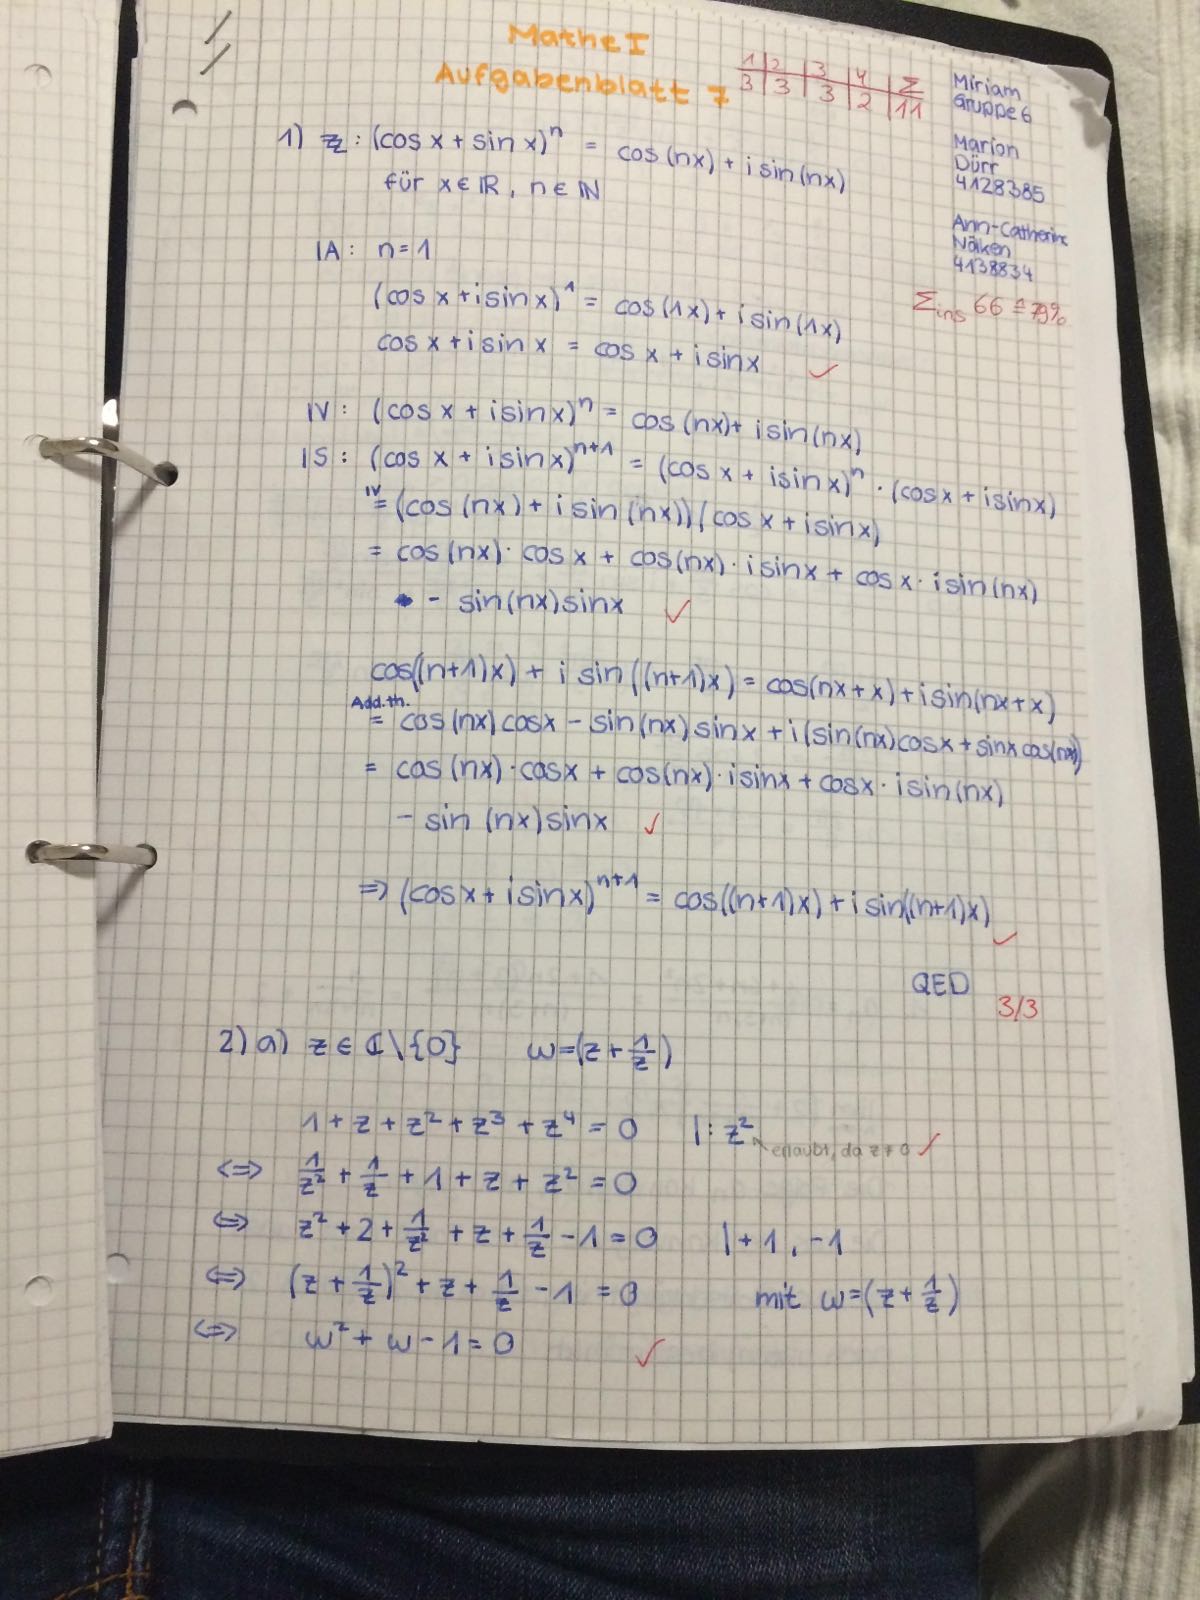 Mathe I
Aufgabenblatt 7
1 | 2 | 3 | 4 | Σ
3 | 3 | 3 | 2 | 11
Miriam
Gruppe 6
Marion
Dürr
4128385
Ann-Catherine
Näken
4138834
Σins 66 ≙ 79%
1) zz: (cos x + sin x)^n = cos(nx) + i sin(nx)
für x ∈ ℝ, n ∈ ℕ
IA: n = 1
(cos x + i sin x)^1 = cos(1x) + i sin(1x)
cos x + i sin x = cos x + i sin x ✓
IV: (cos x + i sin x)^n = cos(nx) + i sin(nx)
IS: (cos x + i sin x)^{n+1} = (cos x + i sin x)^n · (cos x + i sin x)
IV
= (cos(nx) + i sin(nx))(cos x + i sin x)
= cos(nx) · cos x + cos(nx) · i sin x + cos x · i sin(nx)
- sin(nx) sin x ✓
cos((n+1)x) + i sin((n+1)x) = cos(nx + x) + i sin(nx + x)
Add.th.
= cos(nx) cos x - sin(nx) sin x + i(sin(nx) cos x + sin x cos(nx))
= cos(nx) · cos x + cos(nx) · i sin x + cos x · i sin(nx)
- sin(nx) sin x ✓
⇒ (cos x + i sin x)^{n+1} = cos((n+1)x) + i sin((n+1)x) ✓
QED
3/3
2) a) z ∈ ℂ\{0} ω = (z + 1/z)
1 + z + z² + z³ + z⁴ = 0 | : z²
erlaubt, da z ≠ 0 ✓
⇔ 1/z² + 1/z + 1 + z + z² = 0
⇔ z² + 2 + 1/z² + z + 1/z - 1 = 0 | +1, -1
⇔ (z + 1/z)² + z + 1/z - 1 = 0 mit ω = (z + 1/z)
⇔ ω² + ω - 1 = 0 ✓